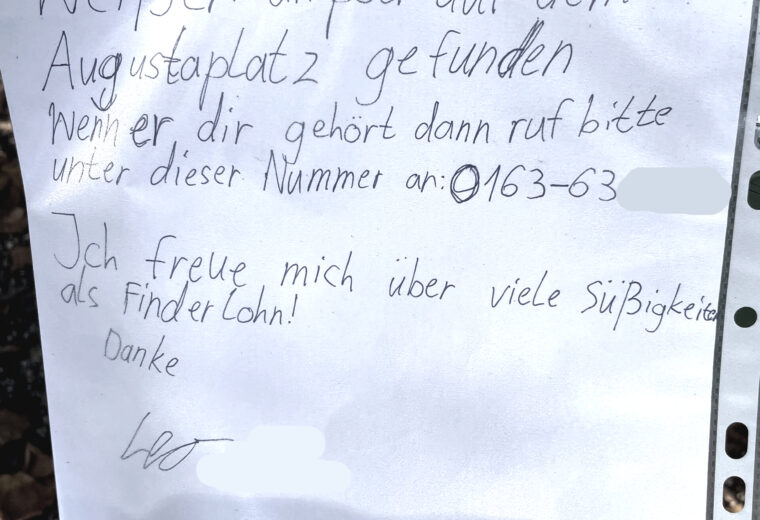 auf dem
Augustaplatz gefunden
Wenn er dir gehört dann ruf bitte
unter dieser Nummer an: 0163-63
Ich freue mich über viele Süßigkeiten
als Finderlohn!
Danke
Leo